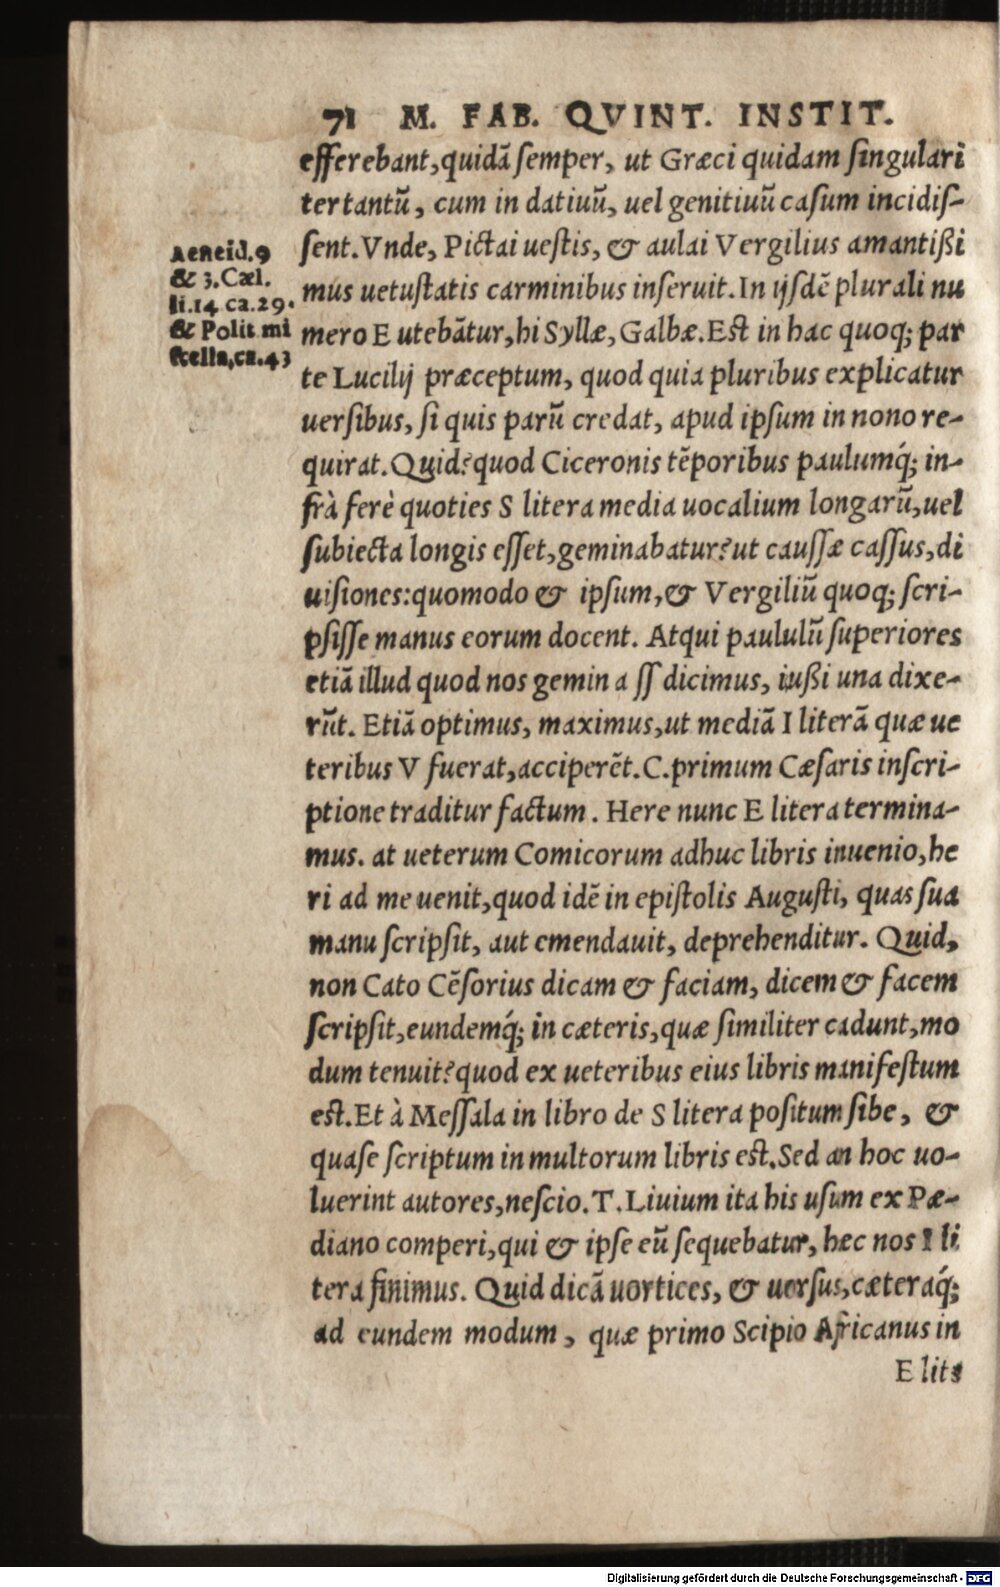 71 M. FAB. QVINT. INSTIT.
efferebant, quidã semper, ut Græci quidam singulari
ter tantũ, cum in datiuũ, uel genitiuũ casum incidis-
sent. Vnde, Pictai uestis, & aulai Vergilius amantißi
mus uetustatis carminibus inseruit. In ijsdẽ plurali nu
mero E utebãtur, hi Syllæ, Galbæ. Est in hac quoq; par
te Lucilij præceptum, quod quia pluribus explicatur
uersibus, si quis parũ credat, apud ipsum in nono re-
quirat. Quid? quod Ciceronis tẽporibus paulumq́; in-
frà ferè quoties S litera media uocalium longarũ, uel
subiecta longis esset, geminabatur? ut caussæ cassus, di
uisiones: quomodo & ipsum, & Vergiliũ quoq; scri-
psisse manus eorum docent. Atqui paululũ superiores
etiã illud quod nos gemina ss dicimus, iußi una dixe-
rũt. Etiã optimus, maximus, ut mediã I literã quæ ue
teribus V fuerat, acciperẽt. C. primum Cæsaris inscri-
ptione traditur factum. Here nunc E litera termina-
mus. at ueterum Comicorum adhuc libris inuenio, he
ri ad me uenit, quod idẽ in epistolis Augusti, quas sua
manu scripsit, aut emendauit, deprehenditur. Quid,
non Cato Cẽsorius dicam & faciam, dicem & facem
scripsit, eundemq́; in cæteris, quæ similiter cadunt, mo
dum tenuit? quod ex ueteribus eius libris manifestum
est. Et à Messala in libro de S litera positum sibe, &
quase scriptum in multorum libris est. Sed an hoc uo-
luerint autores, nescio. T. Liuium ita his usum ex Pæ-
diano comperi, qui & ipse eũ sequebatur, hæc nos I li
tera finimus. Quid dicã uortices, & uorsus, cæteraq́;
ad eundem modum, quæ primo Scipio Africanus in
E lite
Aeneid. 9
& 3. Cæl.
li. 14 ca. 29.
& Polit. mi
scella, ca. 43
Digitalisierung gefördert durch die Deutsche Forschungsgemeinschaft - DFG